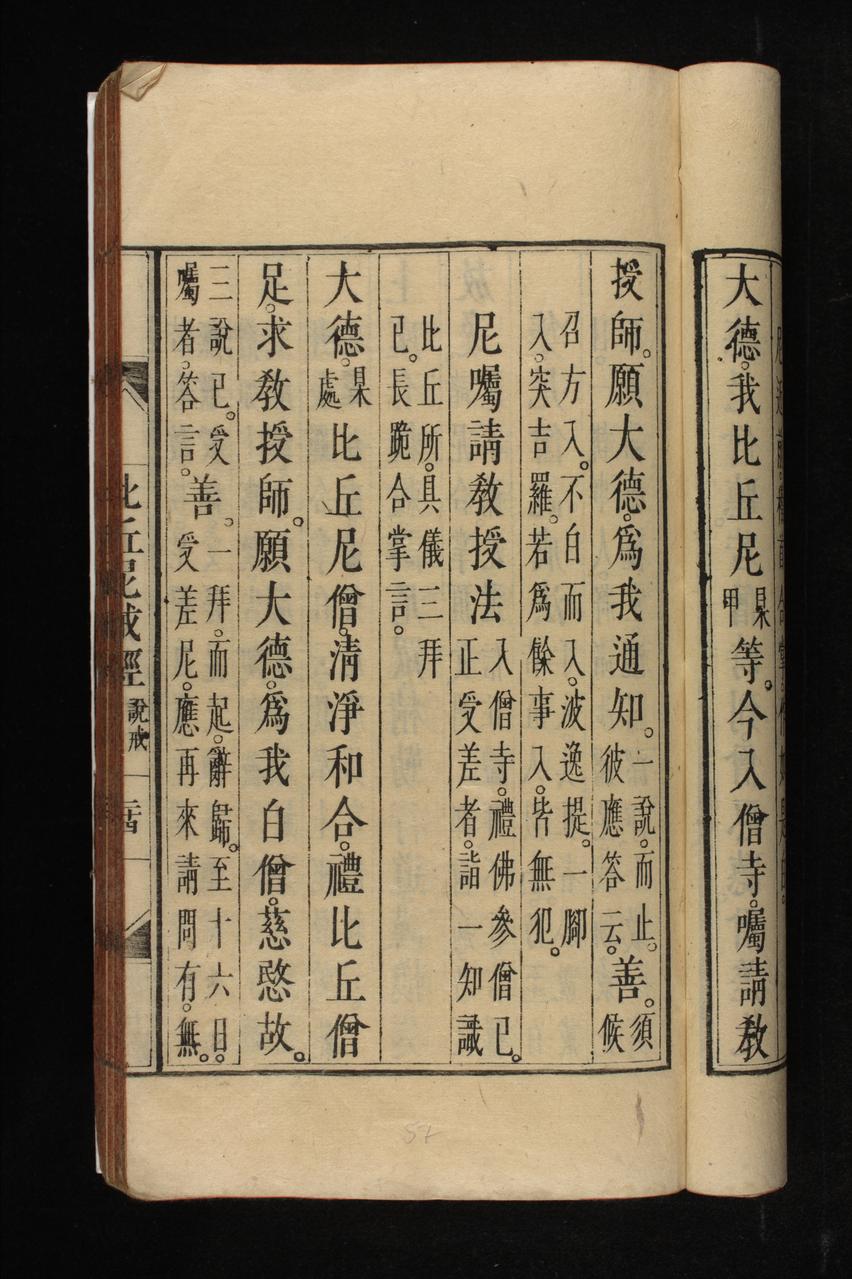 大德。我比丘尼某甲等。今入僧寺。囑請敎
授師。願大德。爲我通知。一說。而止。彼應答云。善。須候
召方入。不白而入。波逸提。一腳
入。突吉羅。若爲餘事入。皆無犯。
尼囑請敎授法入僧寺。禮佛參僧已。正受差者。詣一知識
比丘所。具儀三拜
已。長跪合掌言。
大德。某處比丘尼僧。清淨和合。禮比丘僧
足。求敎授師。願大德。爲我白僧。慈愍故。
三說已。受囑者。答言。善。一拜。而起。辭歸。至十六日。受差尼。應再來請問有。無。
比丘尼戒經 說戒
57